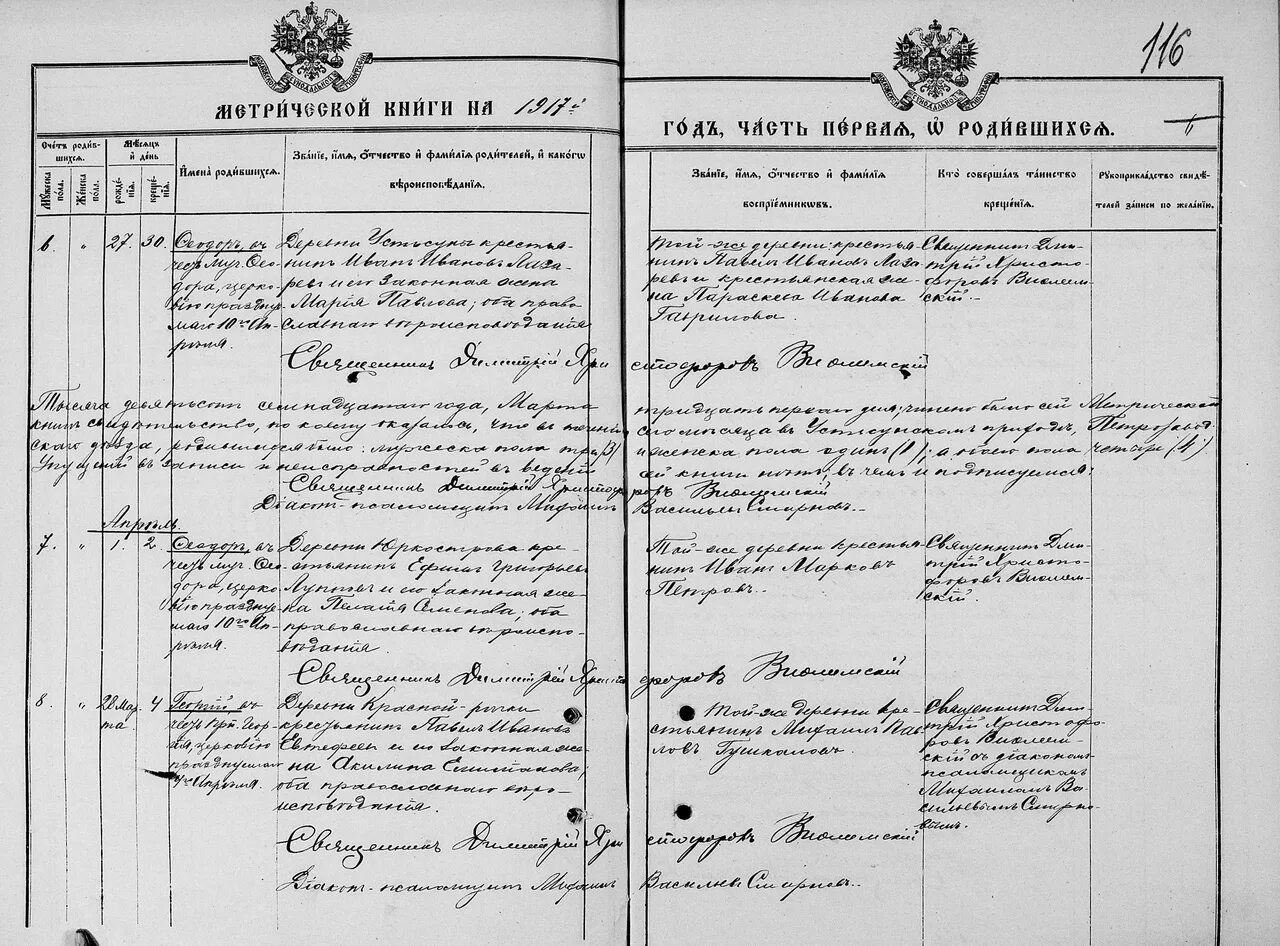 116
МЕТРИЧЕСКОЙ КНИГИ НА 1917й
ГОДЪ, ЧАСТЬ ПЕРВАЯ, Ѡ РОДИВШИХСЯ.
Счетъ родив-
шихся.
Мужеска пола.
Женска пола.
Мѣсяцъ
и день
рожде-
нія.
креще-
нія.
Имена родившихся.
Званіе, имя, отчество и фамилія родителей, и какогѡ
вѣроисповѣданія.
Званіе, имя, отчество и фамилія
воспріемниковъ.
Кто совершалъ таинство
крещенія.
Рукоприкладство свидѣ-
телей записи по желанію.
6. " 27. 30.
Ѳеодоръ, въ
честь муч. Ѳео-
дора, церко-
вію праздну-
емаго 10го Ап-
рѣля.
Деревни Устьсуны крестья-
нинъ Иванъ Ивановъ Лаза-
ревъ и его законная жена
Марія Павлова; оба право-
славнаго вѣроисповѣданія
Той-же деревни: крестья-
нинъ Павелъ Ивановъ Лаза-
ревъ и крестьянская же-
на Параскева Иванова
Гаврилова.
Священникъ Дми-
трій Христо-
форовъ Виѳлеем-
скій.
Священникъ Димитрій Христофоровъ Виѳлеемскій
Тысяча девятьсот семнадцатаго года, Марта тридцать перваго дня; чинено было сей Метрической
книгѣ свидѣтельство, по коему оказалось, что въ теченіи сего мѣсяца въ Устьсунскомъ приходѣ, Петрозавод-
скаго уѣзда, родившихся было: мужеска пола три (3) и женска пола одинъ (1); а обоего пола четыре (4).
Упущеній въ записи и неисправностей въ веденіи сей книги нѣтъ; въ чемъ и подписуемся:
Священникъ Димитрій Христофоровъ Виѳлеемскій
Діаконъ-псаломщикъ Михаилъ Васильевъ Смирновъ.
Апрѣль.
7. " 1. 2.
Ѳеодоръ, въ
честь муч. Ѳео-
дора, церко-
вію праздну-
емаго 10го Ап-
рѣля.
Деревни Юркострова кре-
стьянинъ Ефимъ Григорьевъ
и его законная же-
на Пелагія Семенова; оба
православнаго вѣроиспо-
вѣданія.
Той-же деревни крестья-
нинъ Иванъ Марковъ
Петровъ.
Священникъ Дми-
трій Христо-
форовъ Виѳлеем-
скій.
Священникъ Димитрій Христофоровъ Виѳлеемскій
8. " 28 Мар-
та. 4
Георгій въ
честь Геор-
гія, церковію
празднуемаго
Апрѣля.
Деревни Красной-рѣчки
крестьянинъ Павелъ Ивановъ
Евтефеевъ и его законная же-
на Акилина Емельянова;
оба православнаго вѣро-
исповѣданія.
Той-же деревни кре-
стьянинъ Михаилъ Пав-
ловъ
Священникъ Дми-
трій Христофо-
ровъ Виѳлеем-
скій съ діакономъ-
псаломщикомъ
Михаиломъ Ва-
сильевымъ Смирно-
вымъ.
Священникъ Димитрій Христофоровъ Виѳлеемскій
Діаконъ-псаломщикъ Михаилъ Васильевъ Смирновъ.